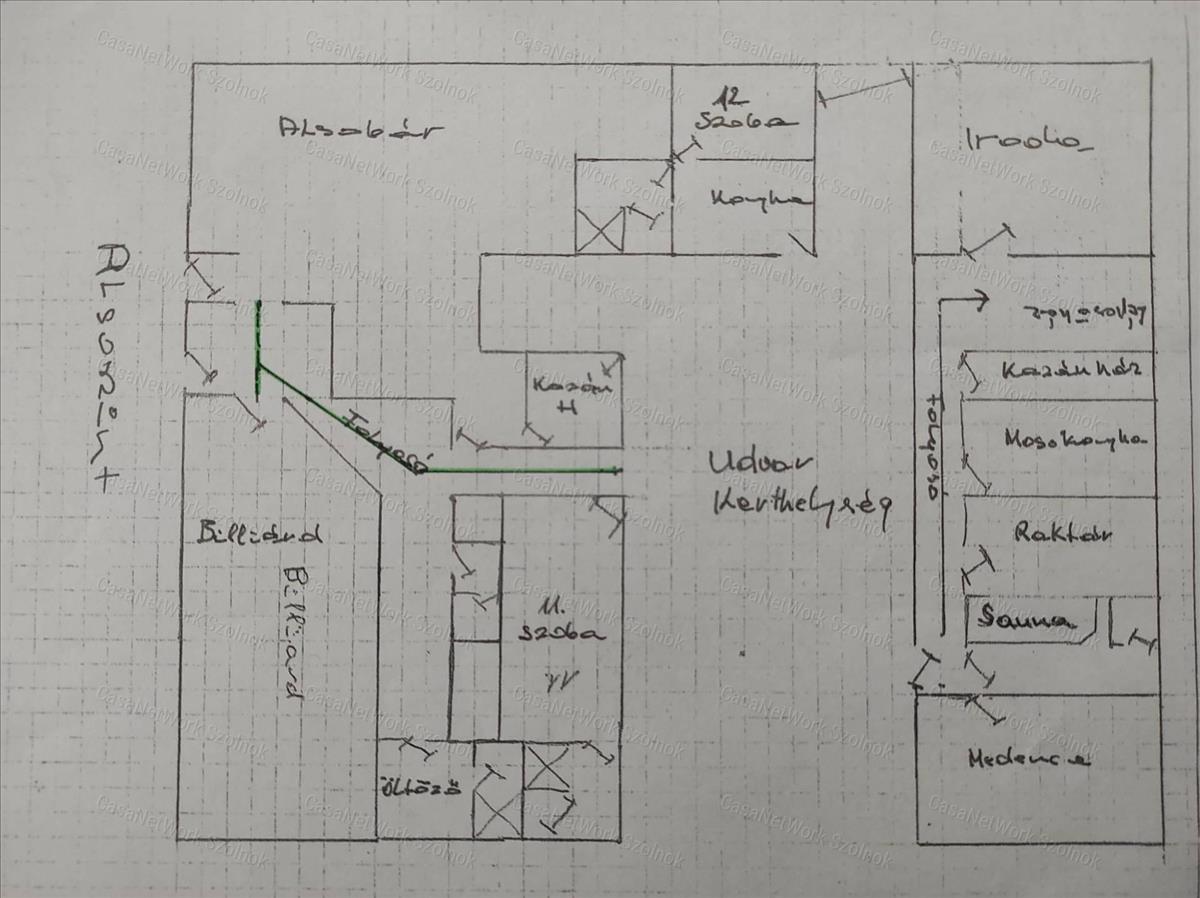 Alsószint
Alsobár
12
Szoba
Konyha
Iroda
Kazán
H
Folyosó
Udvar
Kerthelység
Folyosó
Kazánház
Mosokonyha
Raktár
Sauna
Medence
Billiárd
Billiard
11.
szoba
öltöző
CasaNetWork Szolnok